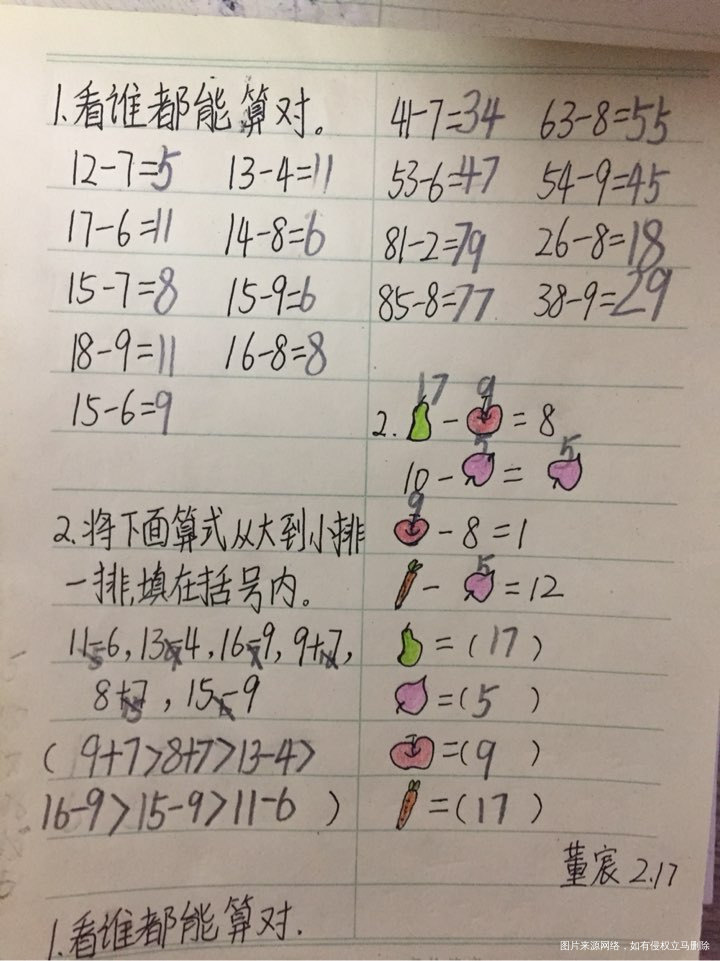 1.看谁都能算对。
12-7=5 13-4=11
17-6=11 14-8=6
15-7=8 15-9=6
18-9=11 16-8=8
15-6=9
2.将下面算式从大到小排
一排,填在括号内。
11-6,13-4,16-9,9+7,
8+7,15-9
( 9+7>8+7>13-4>
16-9>15-9>11-6 )
1.看谁都能算对.
41-7=34 63-8=55
53-6=47 54-9=45
81-2=79 26-8=18
85-8=77 38-9=29
17 9
2. - = 8
5 5
10- =
9
-8=1
5
- =12
=(17)
=(5)
=(9)
=(17)
董宸 2.17
图片来源网络，如有侵权立马删除